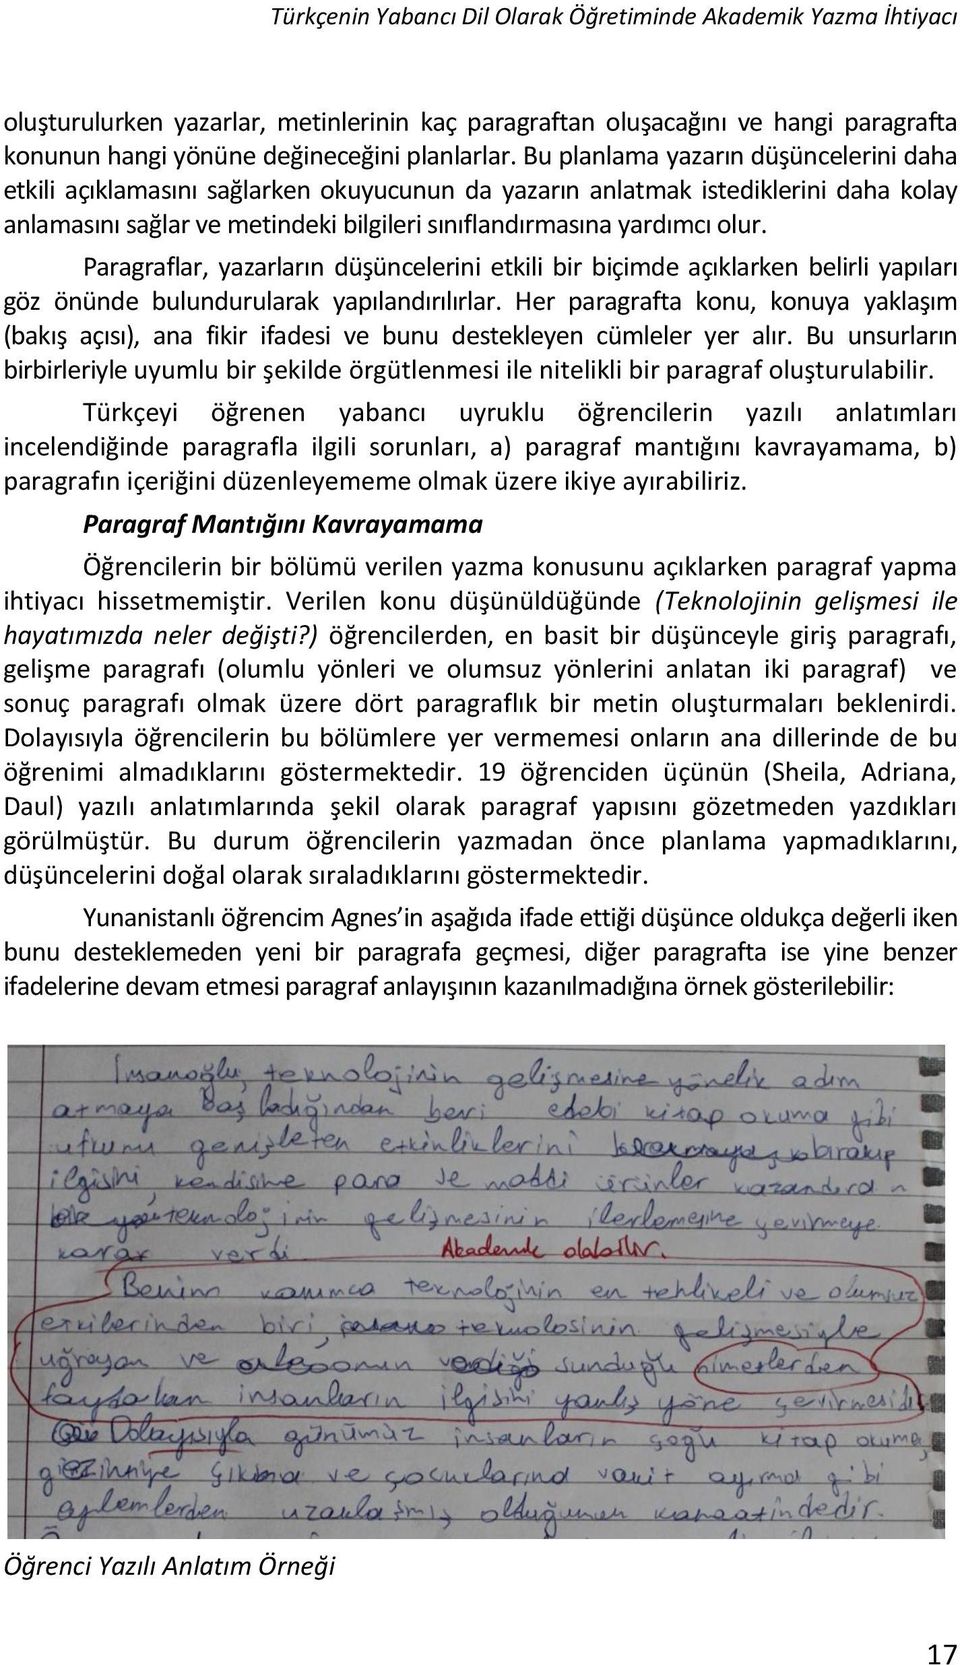 Türkçenin Yabancı Dil Olarak Öğretiminde Akademik Yazma İhtiyacı
oluşturulurken yazarlar, metinlerinin kaç paragraftan oluşacağını ve hangi paragrafta
konunun hangi yönüne değineceğini planlarlar. Bu planlama yazarın düşüncelerini daha
etkili açıklamasını sağlarken okuyucunun da yazarın anlatmak istediklerini daha kolay
anlamasını sağlar ve metindeki bilgileri sınıflandırmasına yardımcı olur.
Paragraflar, yazarların düşüncelerini etkili bir biçimde açıklarken belirli yapıları
göz önünde bulundurularak yapılandırılırlar. Her paragrafta konu, konuya yaklaşım
(bakış açısı), ana fikir ifadesi ve bunu destekleyen cümleler yer alır. Bu unsurların
birbirleriyle uyumlu bir şekilde örgütlenmesi ile nitelikli bir paragraf oluşturulabilir.
Türkçeyi öğrenen yabancı uyruklu öğrencilerin yazılı anlatımları
incelendiğinde paragrafla ilgili sorunları, a) paragraf mantığını kavrayamama, b)
paragrafın içeriğini düzenleyememe olmak üzere ikiye ayırabiliriz.
Paragraf Mantığını Kavrayamama
Öğrencilerin bir bölümü verilen yazma konusunu açıklarken paragraf yapma
ihtiyacı hissetmemiştir. Verilen konu düşünüldüğünde (Teknolojinin gelişmesi ile
hayatımızda neler değişti?) öğrencilerden, en basit bir düşünceyle giriş paragrafı,
gelişme paragrafı (olumlu yönleri ve olumsuz yönlerini anlatan iki paragraf) ve
sonuç paragrafı olmak üzere dört paragraflık bir metin oluşturmaları beklenirdi.
Dolayısıyla öğrencilerin bu bölümlere yer vermemesi onların ana dillerinde de bu
öğrenimi almadıklarını göstermektedir. 19 öğrenciden üçünün (Sheila, Adriana,
Daul) yazılı anlatımlarında şekil olarak paragraf yapısını gözetmeden yazdıkları
görülmüştür. Bu durum öğrencilerin yazmadan önce planlama yapmadıklarını,
düşüncelerini doğal olarak sıraladıklarını göstermektedir.
Yunanistanlı öğrencim Agnes’in aşağıda ifade ettiği düşünce oldukça değerli iken
bunu desteklemeden yeni bir paragrafa geçmesi, diğer paragrafta ise yine benzer
ifadelerine devam etmesi paragraf anlayışının kazanılmadığına örnek gösterilebilir:
İnsanoğlu, teknolojinin gelişmesine yönelik adım
atmaya başladığından beri edebi kitap okuma gibi
ufkunu genişleten etkinliklerini bırakıp
ilgisini, kendisine para ve maddi ürünler kazandıran
teknolojinin gelişmesinin ilerlemesine çevirmeye
karar verdi.
Benim kanımca teknolojinin en tehlikeli ve olumsuz
etkilerinden biri, teknolosinin gelişmesiyle
uğrayan ve sunduğu nimetlerden
faydalan insanların ilgisini yanlış yöne çevirmesidir
Dolayısıyla günümüz insanların çoğu kitap okuma,
gezintiye çıkma ve çocuklarına vakit ayırma gibi
eylemlerden uzaklaşmış olduğunun kanaatindedir.
Öğrenci Yazılı Anlatım Örneği
17